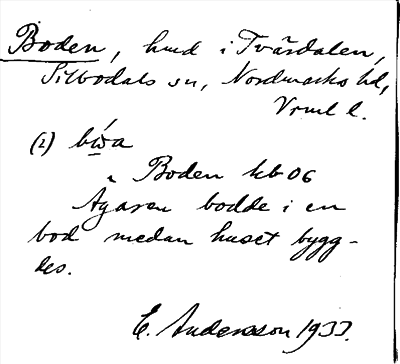 Boden, hmd i Tvärdalen,
Silbodals sn, Nordmarks hd,
Vrml l.
(2) bẃa
" Boden kb 06
Ägaren bodde i en
bod medan huset bygg-
des.
E. Andersson 1933.